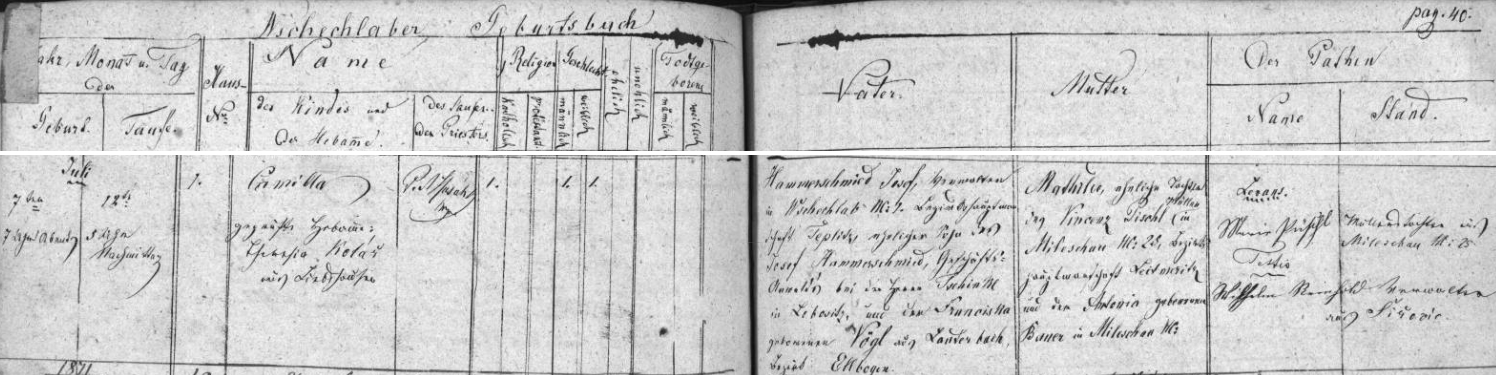 Wschechlaber Geburtsbuch
pag. 40.
Jahr, Monat u. Tag
der
Geburt. Taufe.
Haus-
Nro
Name
des Kindes und
der Hebame.
des taufen-
den Priesters.
Religion
Katholisch
Protestant.
Geschlecht
männlich
weiblich
ehelich
unehelich
Todtge-
borene
männlich
weiblich
Vater.
Mutter
Der Pathen
Name
Stand.
Juli
7ten
7 Uhr Abends
12ten
5 Uhr
Nachmittag
1.
Camilla
geprüfte Hebame:
Theresia Kolář
aus Liebshausen
1.
1.
1.
Hammerschmied Josef, Verwalter
in Wschechlab No: 1. Bezirkshauptmann-
schaft Teplitz, ehelicher Sohn des
Josef Hammerschmied, Geschäfts-
bei den Herrn
in Lobositz, und der Franciska
geborenen Vogl aus Lauterbach,
Bezirk Ellbogen.
Mathilde, eheliche Tochter
des Vincenz Pischl Müller in
Mileschau No: 25, Bezirks-
hauptmannschaft Leitmeritz
und der Antonia geborenen
Bauer in Mileschau No:
Levans.
Marie Püschl
Müllerstochter aus
Mileschau No: 25
Testis
Wilhelm Reinhold Verwalter
aus
1871